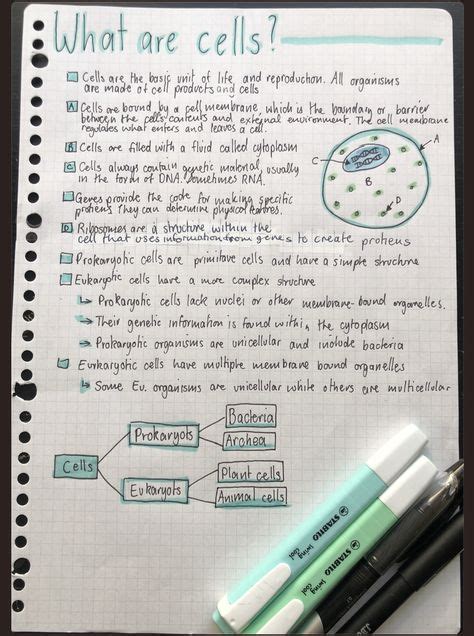 What are cells?
Cells are the basic unit of life, and reproduction. All organisms
are made of cell products and cells
A Cells are bound by a cell membrane, which is the boundary or barrier
between the cells' contents and external environment. The cell membrane
regulates what enters and leaves a cell.
B Cells are filled with a fluid called cytoplasm
C Cells always contain genetic material, usually
in the form of DNA, sometimes RNA.
Genes provide the code for making specific
proteins. They can determine physical features.
D Ribosomes are a structure within the
cell that uses information from genes to create proteins
A
C
B
D
Prokaryotic cells are primitave cells and have a simple structure
Eukaryotic cells have a more complex structure
↳ Prokaryotic cells lack nuclei or other membrane-bound organelles.
↳ Their genetic information is found within the cytoplasm
↳ Prokaryotic organisms are unicellular and include bacteria
Eurkaryotic cells have multiple membrane bound organelles
↳ Some Eu. organisms are unicellular while others are multicellular
Cells
Prokaryots
Bacteria
Archea
Eukaryots
Plant cells
Animal cells
STABILO
swing
cool
STABILO
swing
cool